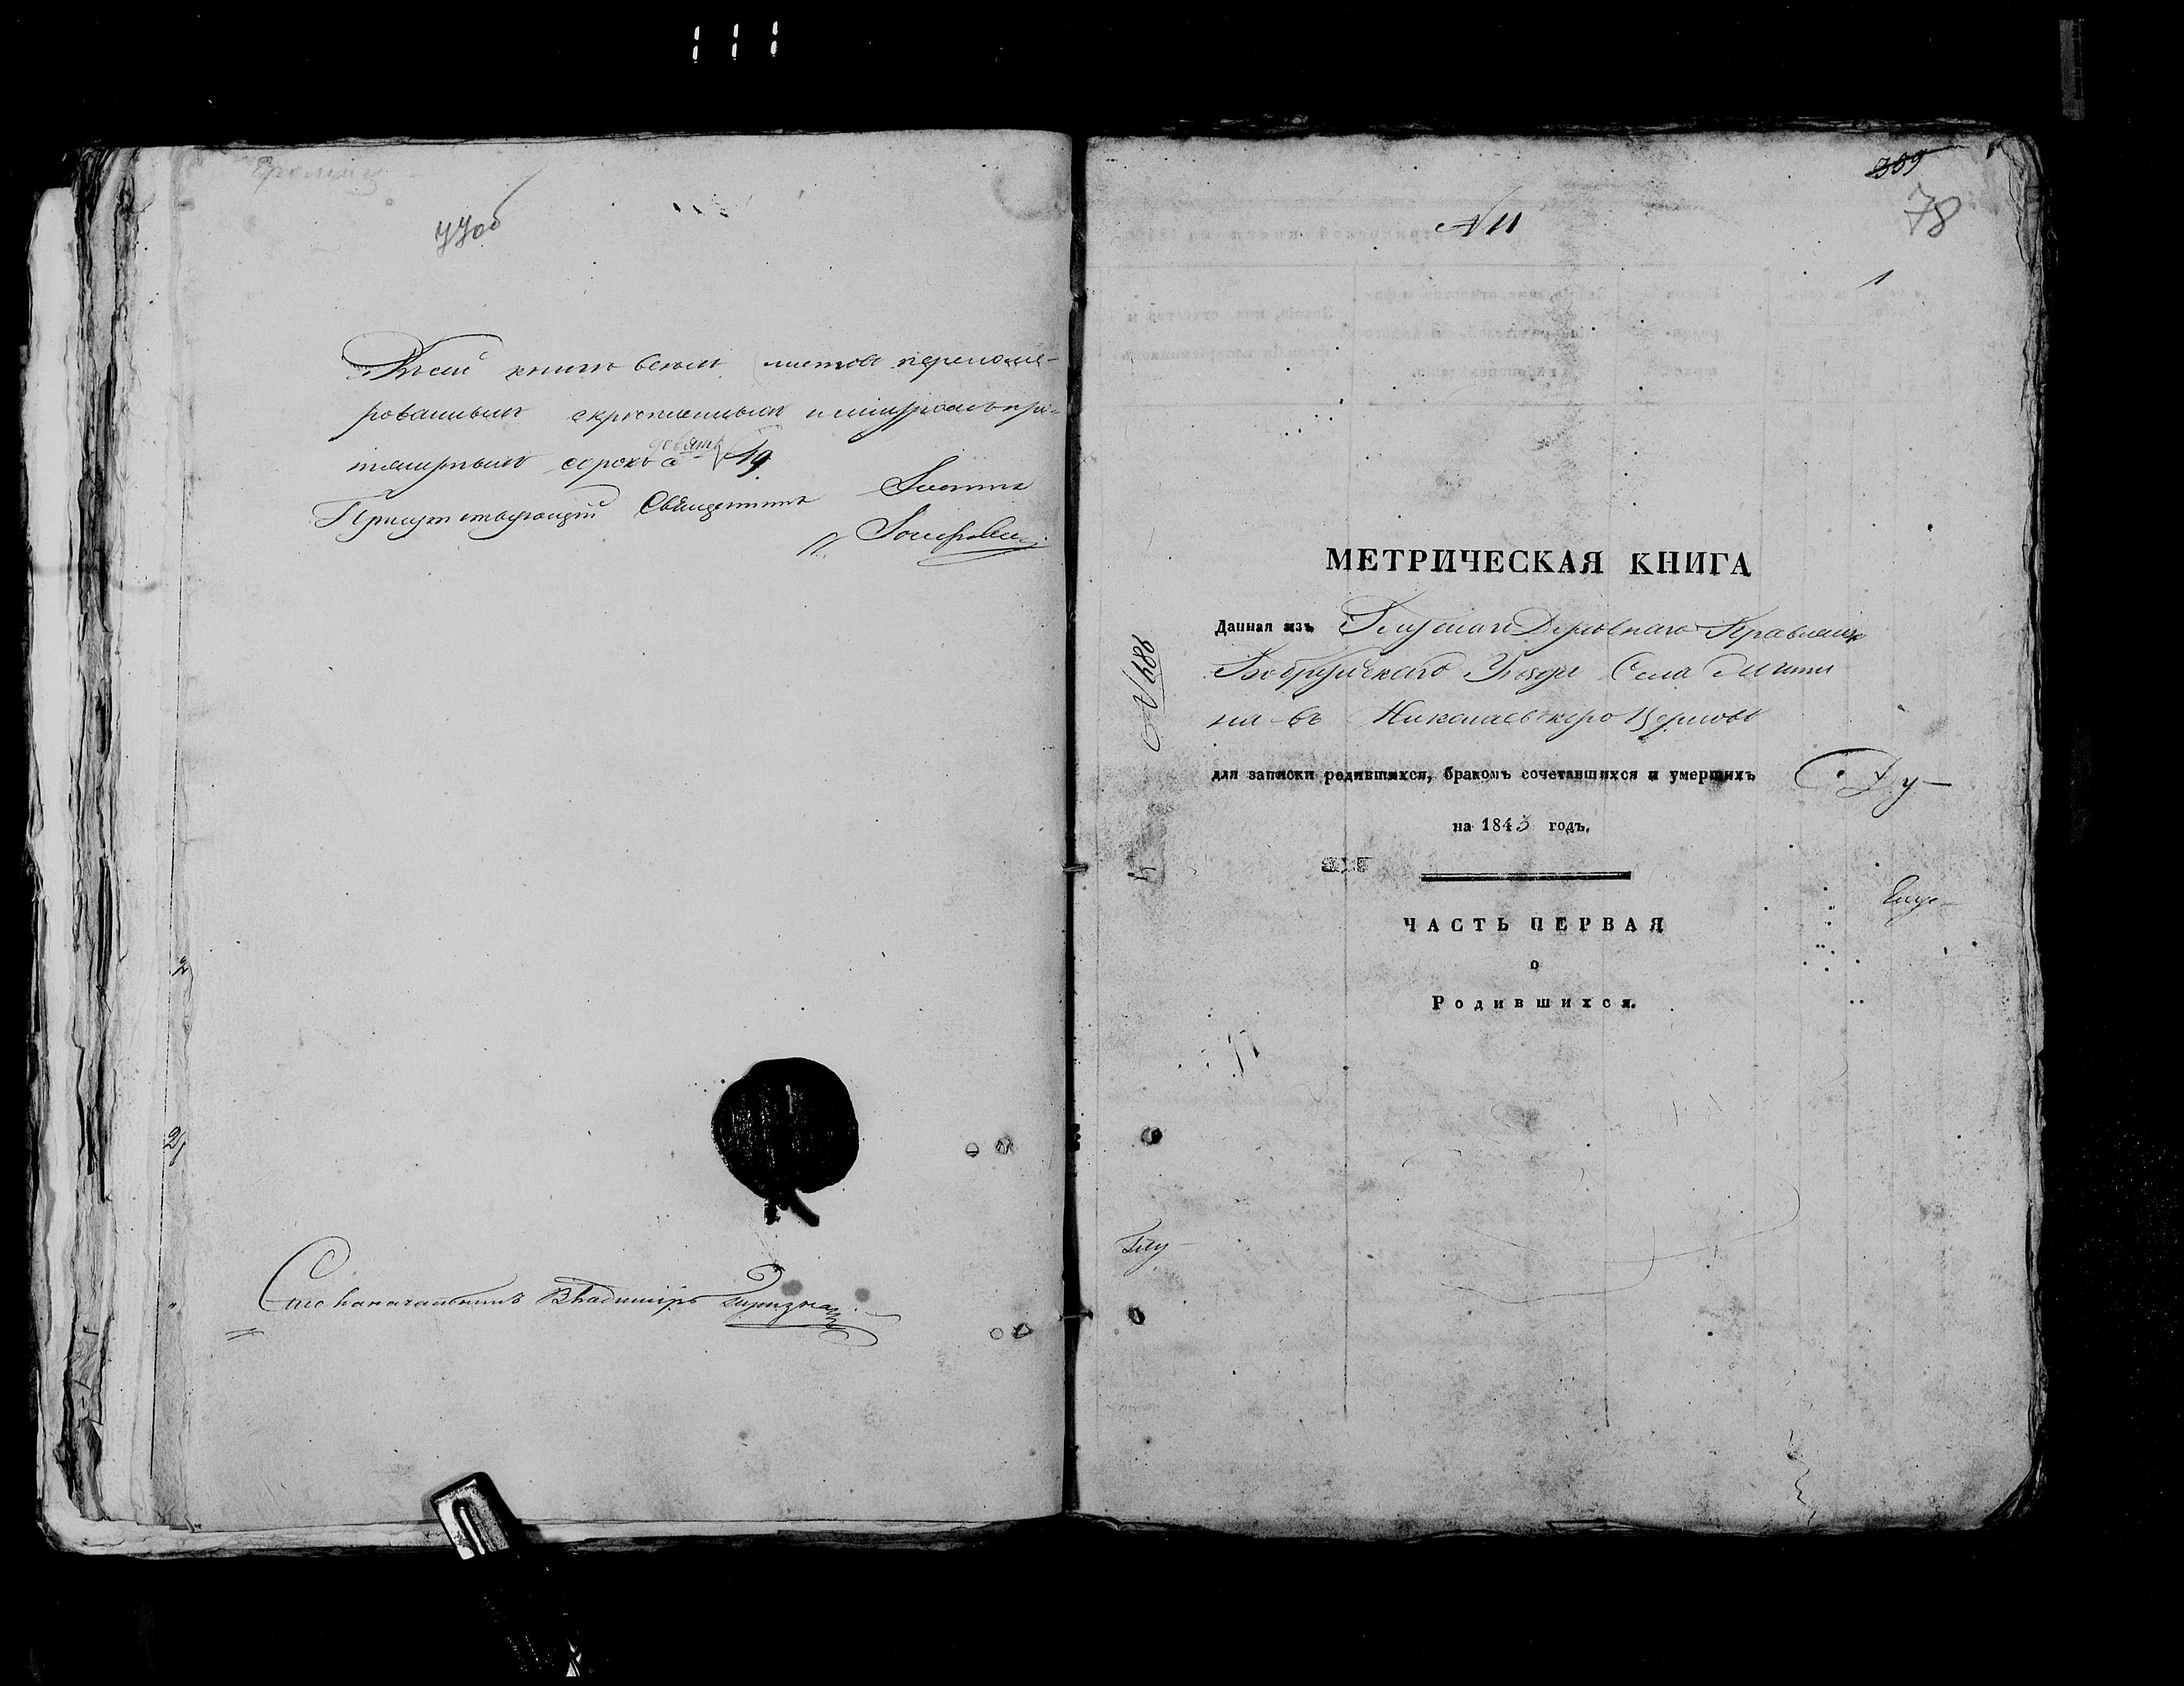 77об
Въ сей книгѣ всехъ листовъ перенуме-
рованныхъ скрепленныхъ и шнуромъ при-
печатныхъ сорокъ девять 49
Присутствующій Священникъ
Столоначальникъ Владиміръ
309
78
№ 11
1
МЕТРИЧЕСКАЯ КНИГА
Данная изъ Глускаго Духовнаго Правленія
Бобруйскаго Уѣзда Села
въ Николаевскую Церковь
для записки родившихся, бракомъ сочетавшихся и умершихъ
на 1843 годъ.
ЧАСТЬ ПЕРВАЯ
о
Родившихся.
№ 486
Ду-
Глу-